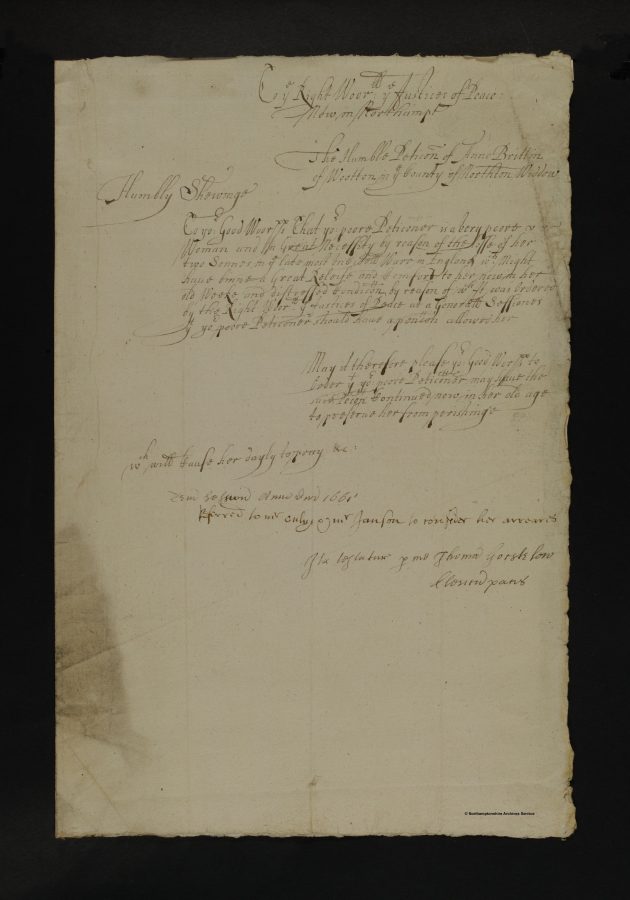 To ye Right Worll ye Justices of Peace
Now in Northampt
The Humble Peticon of Anne Brittin
of Wootton in ye County of Northton Widdow
Humbly Shewinge
To yor Good Worspps That yor poore Petitioner is a very poore
Woman and in Great Necessity by reason of the Losse of her
two Sonnes in ye late most Warr in England wch Might
have binne a Great Releife and Comfort to her now in her
old Weeke and distressed Condition by reason of wch it was Ordered
by the Right Worll ye Justices of Peace at a Generall Sessiones
yt yor poore Petitioner should have a pention allowed her
May it therefore please yor Good Worspps to
Order yt yor poore Petitioner may have the
Continued now in her old age
to preserve her from perishinge
wch will Cause her dayly to pray &c:
Anno Dni 1661
Referred to mr & mr Janson to consider her arreares
Ita testatur p me Thoma
Clericu pacis
© Northamptonshire Archives Service